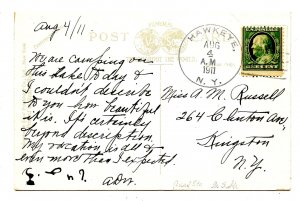 Aug 4/11
POST
HAWKEYE,
AUG
4
A.M.
1911
N.Y.
We are camping on
this lake today &
I couldn't describe
to you how beautiful
it is. Its certainly
beyond description
My vacation is all &
even more than I expected.
Miss A. M. Russell
264 Clinton Ave,
Kingston
N.Y.